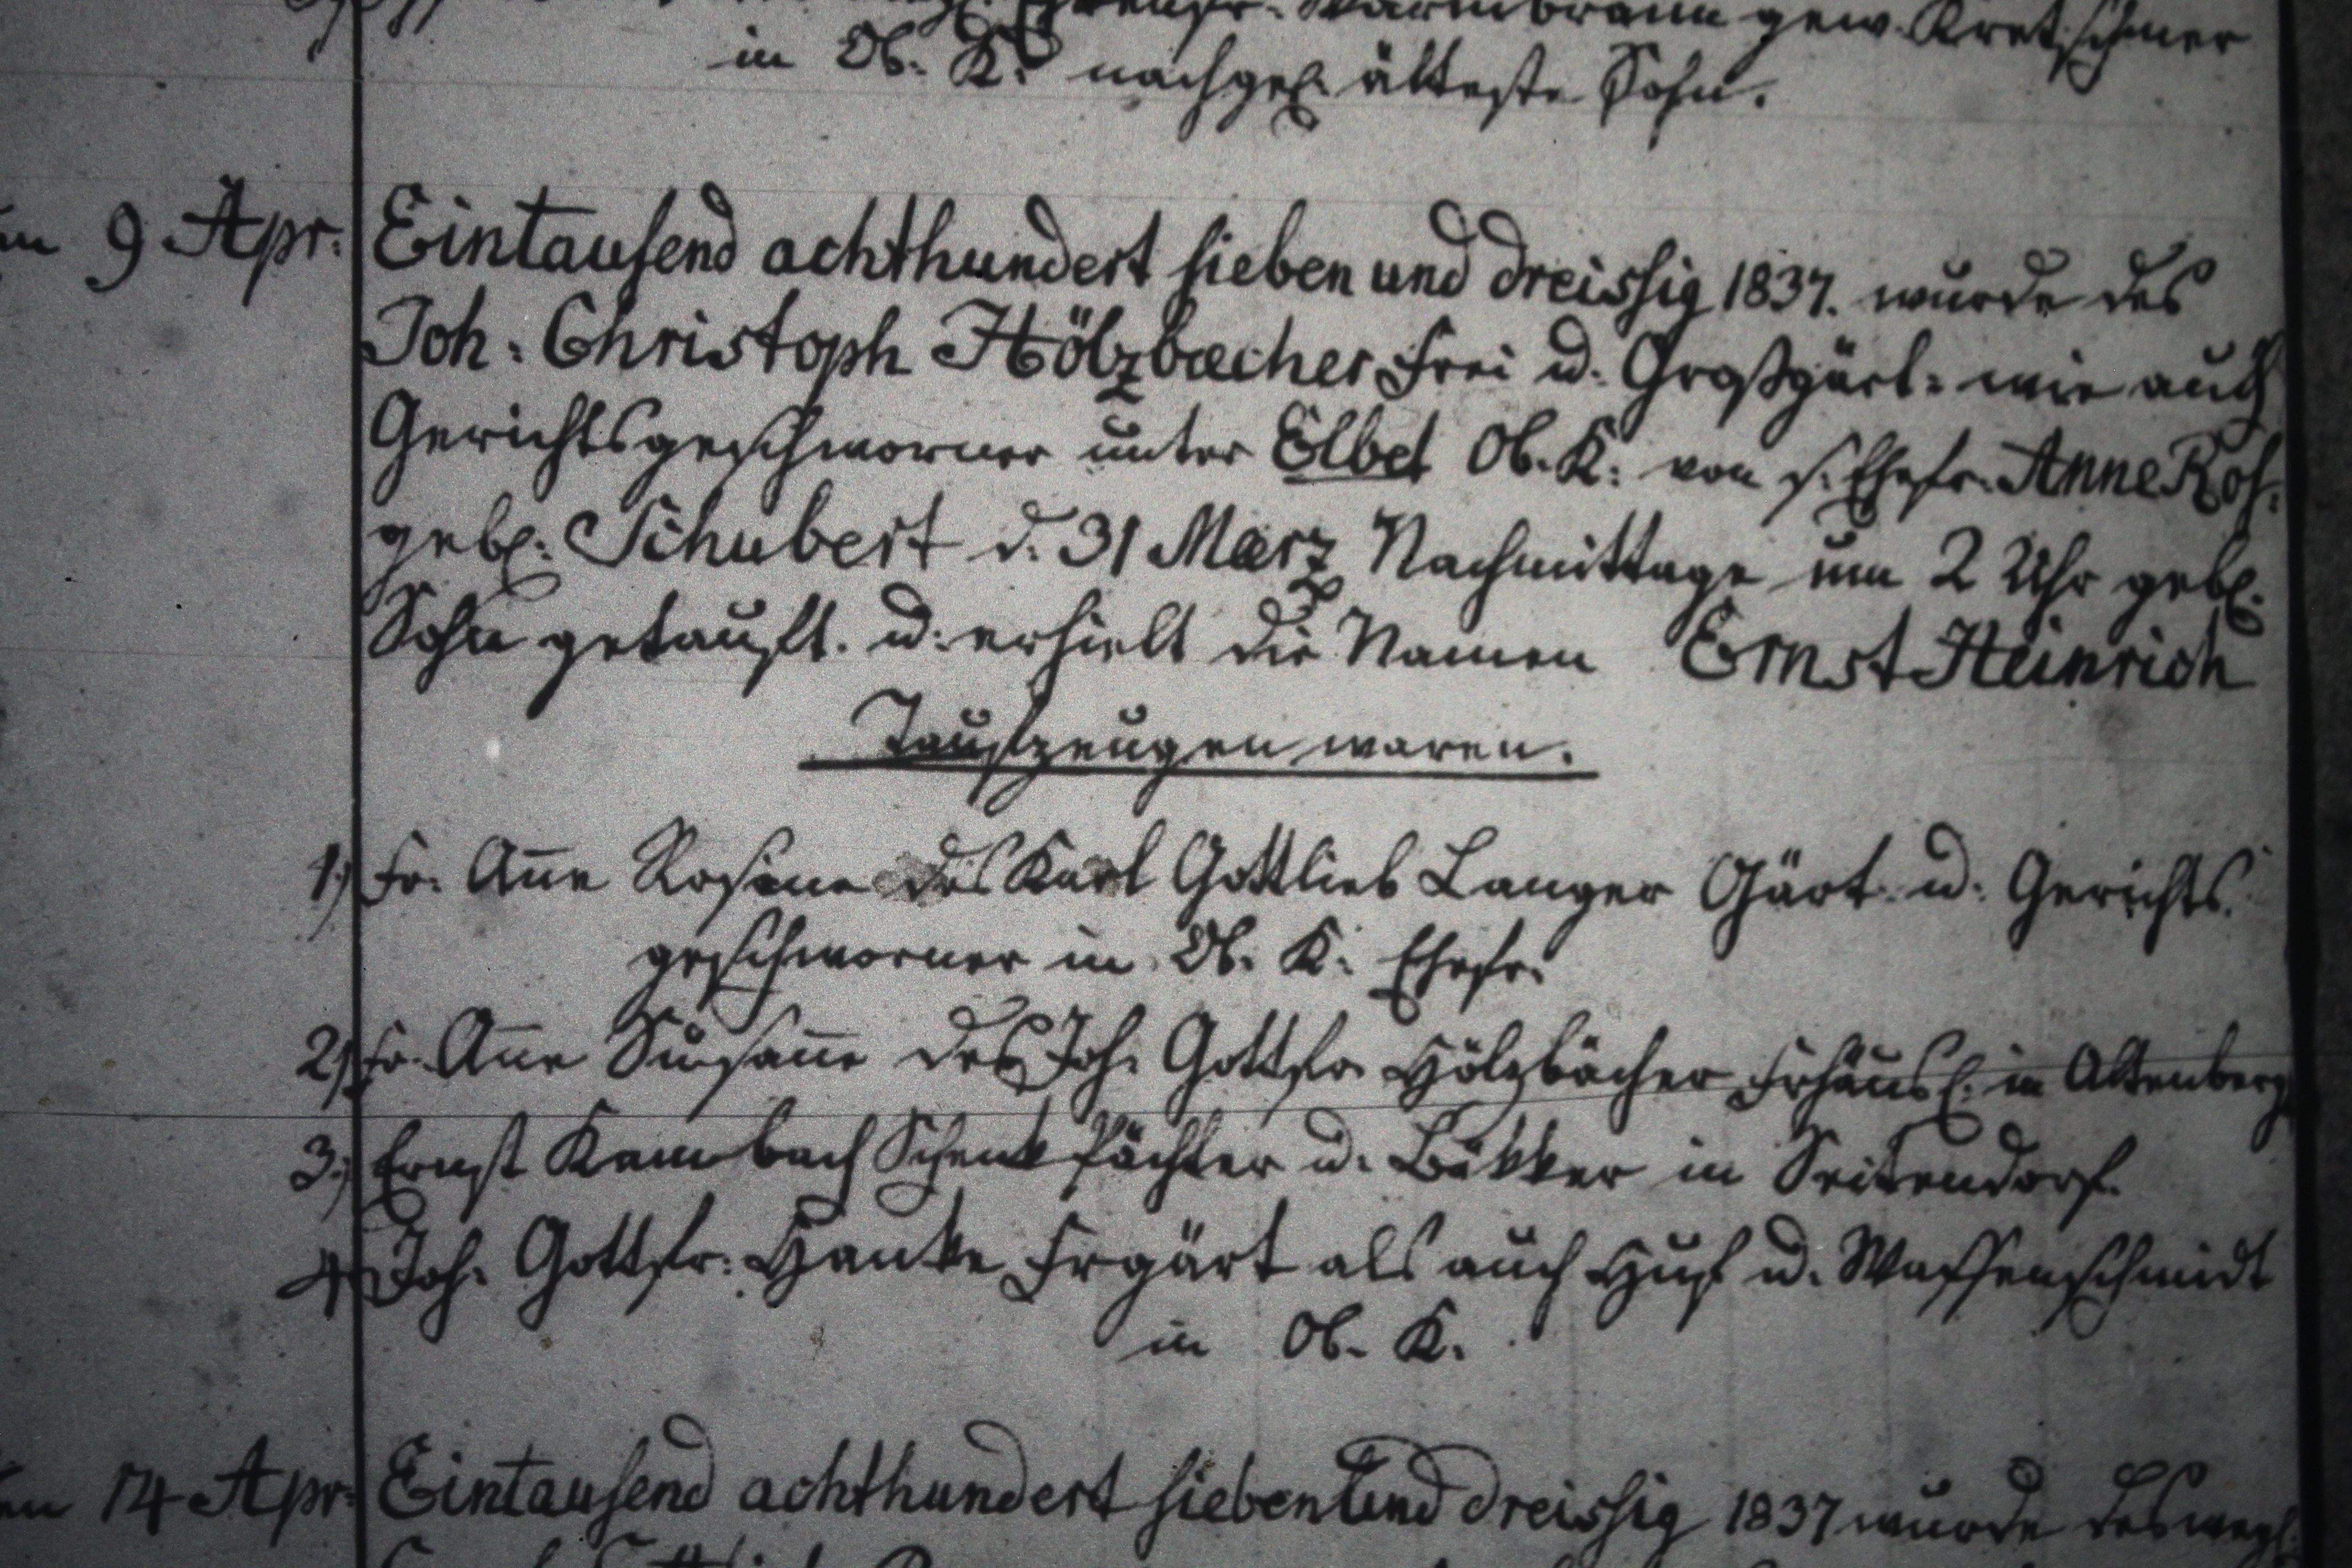 Warmbrunn gew. Kretschmer
in Ob. K. nachgel. älteste Sohn.
9 Apr. Eintausend achthundert sieben und dreissig 1837. wurde des
Joh: Christoph Hölzbæcher Frei u. Großgärt: wie auch
Gerichtsgeschworner unter Elbel Ob. K: von s. Ehefr. Anne Ros:
gebl: Schubert d. 31 Mærz Nachmittage um 2 Uhr gebl.
Sohn getauft. u: erhielt die Namen Ernst Heinrich
Taufzeugen waren.
1) Fr. Anne Rosine des Karl Gottlieb Langer Gärt. u: Gerichts
geschworner in Ob. K: Ehefr.
2) Fr. Anne Susanne des Joh. Gottfr. Hölzbächer Frhäusl. in Altenberg
3) Ernst Kambach Schenk Pächter u. Bäkker in Seitendorf.
4) Joh. Gottfr: Hanke Frgärt als auch Huf u. Waffenschmidt
in Ob. K.
14 Apr: Eintausend achthundert sieben und dreissig 1837 wurde des